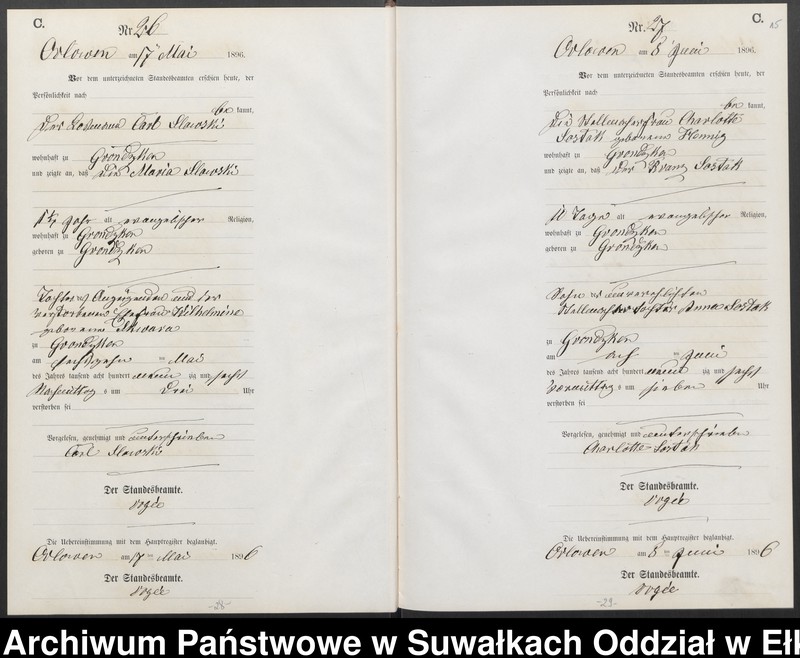 C.
Nr. 26
Orlowen am 17 Mai 1896.
Vor dem unterzeichneten Standesbeamten erschien heute, der
Persönlichkeit nach
be kannt,
der Losmann Carl Slawski
wohnhaft zu Grondzken
und zeigte an, daß die Maria Slawski
Jahr alt evangelischer Religion,
wohnhaft zu Grondzken
geboren zu Grondzken
Tochter des Anzeigenden und der
verstorbenen Ehefrau Wilhelmine
geborene Skwara
zu Grondzken
am sechszehn ten Mai
des Jahres tausend acht hundert neun zig und sechs
Nachmittag s um drei Uhr
verstorben sei
Vorgelesen, genehmigt und unterschrieben
Carl Slawski
Der Standesbeamte.
Vogée
Die Uebereinstimmung mit dem Hauptregister beglaubigt.
Orlowen am 17 ten Mai 1896
Der Standesbeamte.
Vogée
-28-
C.
15
Nr. 27
Orlowen am 8 Juni 1896.
Vor dem unterzeichneten Standesbeamten erschien heute, der
Persönlichkeit nach
be kannt,
die Stellmacherfrau Charlotte
Sostak geborene Hennig
wohnhaft zu Grondzken
und zeigte an, daß der Franz Sostak
Tage alt evangelischer Religion,
wohnhaft zu Grondzken
geboren zu Grondzken
Sohn der unverehlichten
Stellmachertochter Anna Sostak
zu Grondzken
am ten Juni
des Jahres tausend acht hundert neun zig und sechs
Vormittag s um sieben Uhr
verstorben sei
Vorgelesen, genehmigt und unterschrieben
Charlotte Sostak
Der Standesbeamte.
Vogée
Die Uebereinstimmung mit dem Hauptregister beglaubigt.
Orlowen am 8 ten Juni 1896
Der Standesbeamte.
Vogée
-29-
Archiwum Państwowe w Suwałkach Oddział w Ełk